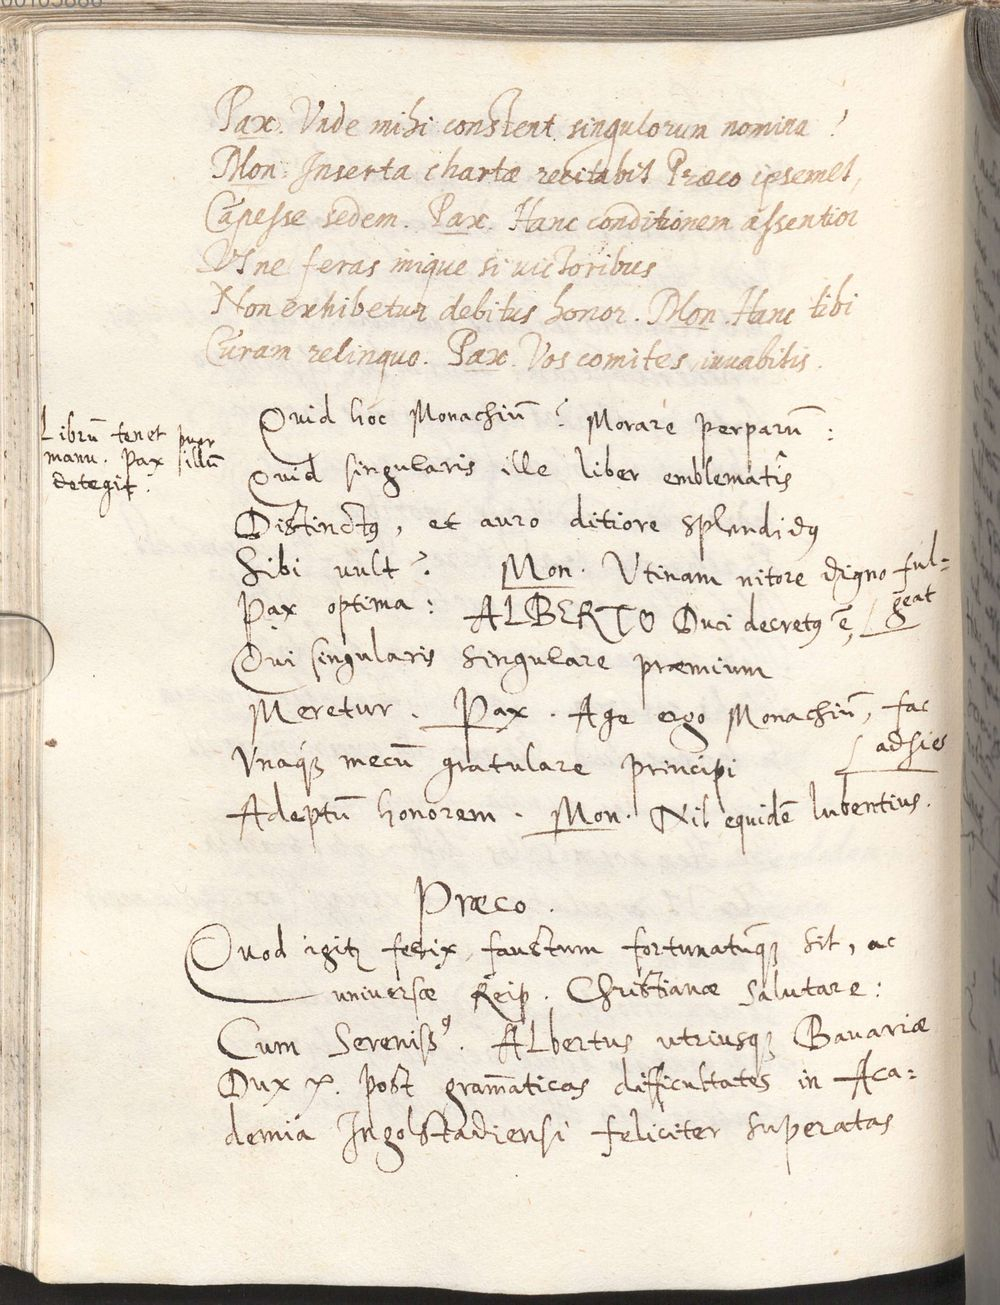 Pax. Vnde mihi constent singulorum nomina?
Mon. Inserta chartæ recitabit Præco ipsemet,
Capesse sedem. Pax. Hanc conditionem assentior
Vt ne feras inique si victoribus
Non exhibetur debitus honor. Mon. Hanc tibi
Curam relinquo. Pax. Vos comites iuuabitis.
Librū tenet puer
manu. Pax illū
detegit.
Quid hoc Monachiū? Morare perparū:
Quid singularis ille liber emblematis
Distinctꝰ, et auro ditiore splendidꝰ
Sibi uult? Mon. Vtinam nitore digno ful-
geat
Pax optima: ALBERTO Duci decretꝰ ē,
Qui singularis singulare præmium
Meretur. Pax. Age ergo Monachiū, fac
adsies
Vnaq́ꝫ mecū gratulare principi
Adeptū honorem. Mon. Nil equidē lubentius.
Præco.
Quod igitꝛ felix, faustum fortunatūqꝫ sit, ac
universæ Reip. Christianæ salutare:
Cum Sereniss⁹. Albertus utriusqꝫ Bauariæ
Dux ꝛc. post gram̄aticas difficultates in Aca-
demia Ingolstadiensi feliciter superatas